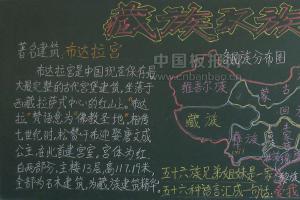 藏族汉族
著名建筑 布达拉宫
布达拉宫是中国现在保存最
大最完整的古代宫堡建筑,坐落于
西藏拉萨市中心的红山上。"布达
拉"梵语意为"佛教圣地",相传
七世纪时,松赞干布迎娶唐文成
公主,在此首建宫室,宫体为红
白两部分,主楼13层,高117.19米,
全部为石木建筑,为藏族建筑精华。
中国板报网
www.cnbanbao.cn
各民族分布图
维吾尔族
蒙古
藏族
回
彝族
五十六族兄弟姐妹是一家
五十六种语言汇成一句话: